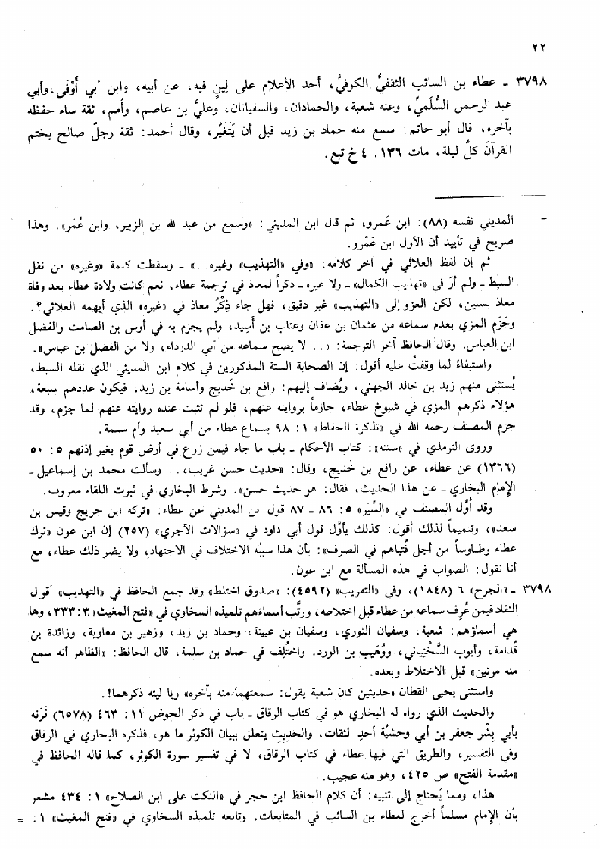 ٢٢
٣٧٩٨ ـ عطاء بن السائب الثقفيُّ الكوفيُّ، أحد الأعلام على لِينٍ فيه. عن أبيه، وابن أبي أوْفَى، وأبي
عبد الرحمن السُّلَميِّ، وعنه شعبة، والحمادان، والسفيانان، وعليُّ بن عاصم، وأُمم، ثقة ساء حفظه
بآخره. قال أبو حاتم: سمع منه حماد بن زيد قبل أن يَتغيَّر، وقال أحمد: ثقة رجلٌ صالح يختم
القرآن كلَّ ليلة، مات ١٣٦. ٤ خ تبع.
المديني نفسه (٨٨): ابن عَمرو، ثم قال ابن المديني: «وسمع من عبد الله بن الزبير، وابن عُمر». وهذا
صريح في تأييد أن الأول ابن عَمْرو.
ثم إن لفظ العلائي في آخر كلامه: «وفي «التهذيب» وغيره» ـ وسقطت كلمة «وغيره» من نقل
السبط ـ ولم أرَ في «تهذيب الكمال» ـ ولا غيره ـ ذكراً لمعاذ في ترجمة عطاء. نعم كانت ولادة عطاء بعد وفاة
معاذ بسنين، لكن العزو إلى «التهذيب» غير دقيق، فهل جاء ذِكْرُ معاذ في «غيره» الذي أبهمه العلائي؟.
وجَزَم المزي بعدم سماعه من عثمان بن عفان وعتاب بن أَسِيد، ولم يجزم به في أوس بن الصامت والفضل
ابن العباس. وقال الحافظ آخر الترجمة: «... لا يصح سماعه من أبي الدرداء، ولا من الفضل بن عباس».
واستيفاءً لما وقفتُ عليه أقول: إن الصحابة الستة المذكورين في كلام ابن المديني الذي نقله السبط،
يُستثنى منهم زيد بن خالد الجهني، ويُضاف إليهم: رافع بن خَديج وأسامة بن زيد. فيكون عددهم سبعة،
هؤلاء ذكرهم المزي في شيوخ عطاء، جازماً بروايته عنهم، فلو لم تثبت عنده روايته عنهم لما جزم، وقد
جزم المصنف رحمه الله في «تذكرة الحفاظ» ١: ٩٨ بسماع عطاء من أبي سعيد وأم سلمة.
وروى الترمذي في «سننه»: كتاب الأحكام ـ باب ما جاء فيمن زرع في أرض قوم بغير إذنهم ٥: ٥٠
(١٣٦٦) عن عطاء، عن رافع بن خَديج، وقال: «حديث حسن غريب،.. وسألت محمد بن إسماعيل ـ
الإمام البخاري ـ عن هذا الحديث، فقال: هو حديث حسن». وشرط البخاري في ثبوت اللقاء معروف.
وقد أوّل المصنف في «السِّيَر» ٥: ٨٦ ـ ٨٧ قول ابن المديني عن عطاء: «تركه ابن جريج وقيس بن
سعد»، وتتميماً لذلك أقول: كذلك يأوَّل قول أبي داود في «سؤالات الآجري» (٢٥٧) إن ابن عون «ترك
عطاء وطاوساً من أجل فُتياهم في الصرف»: بأن هذا سببُه الاختلاف في الاجتهاد، ولا يضر ذلك عطاء، مع
أنا نقول: الصواب في هذه المسألة مع ابن عون.
٣٧٩٨ ـ «الجرح» ٦ (١٨٤٨)، وفي «التقريب» (٤٥٩٢): «صدوق اختلط» وقد جمع الحافظ في «التهذيب» قول
النقاد فيمن عُرِف سماعه من عطاء قبل اختلاطه، ورتَّب أسماءهم تلميذه السخاوي في «فتح المغيث» ٣: ٣٣٣، وها
هي أسماؤهم: شعبة، وسفيان الثوري، وسفيان بن عيينة، وحماد بن زيد، وزهير بن معاوية، وزائدة بن
قدامة، وأيوب السَّخْتِياني، ووُهَيب بن الورد. واختُلِف في حماد بن سلمة. قال الحافظ: «الظاهر أنه سمع
منه مرتين» قبل الاختلاط وبعده.
واستثنى يحيى القطان «حديثين كان شعبة يقول: سمعتهما منه بآخره» ويا ليته ذكرهما!.
والحديث الذي رواه له البخاري هو في كتاب الرقاق ـ باب في ذكر الحوض ١١: ٤٦٣ (٦٥٧٨) قَرَنه
بأبي بِشْر جعفر بن أبي وحشيَّة أحدِ الثقات. والحديث يتعلق ببيان الكوثر ما هو، فذكره البخاري في الرقاق
وفي التفسير، والطريق التي فيها عطاء في كتاب الرقاق، لا في تفسير سورة الكوثر، كما قاله الحافظ في
«مقدمة الفتح» ص ٤٢٥، وهو منه عجيب.
هذا، ومما يُحتاج إلى تنبيه: أن كلام الحافظ ابن حجر في «النكت على ابن الصلاح» ١: ٤٣٤ مشعر
بأن الإمام مسلماً أخرج لعطاء بن السائب في المتابعات. وتابعه تلميذه السخاوي في «فتح المغيث» ١: =